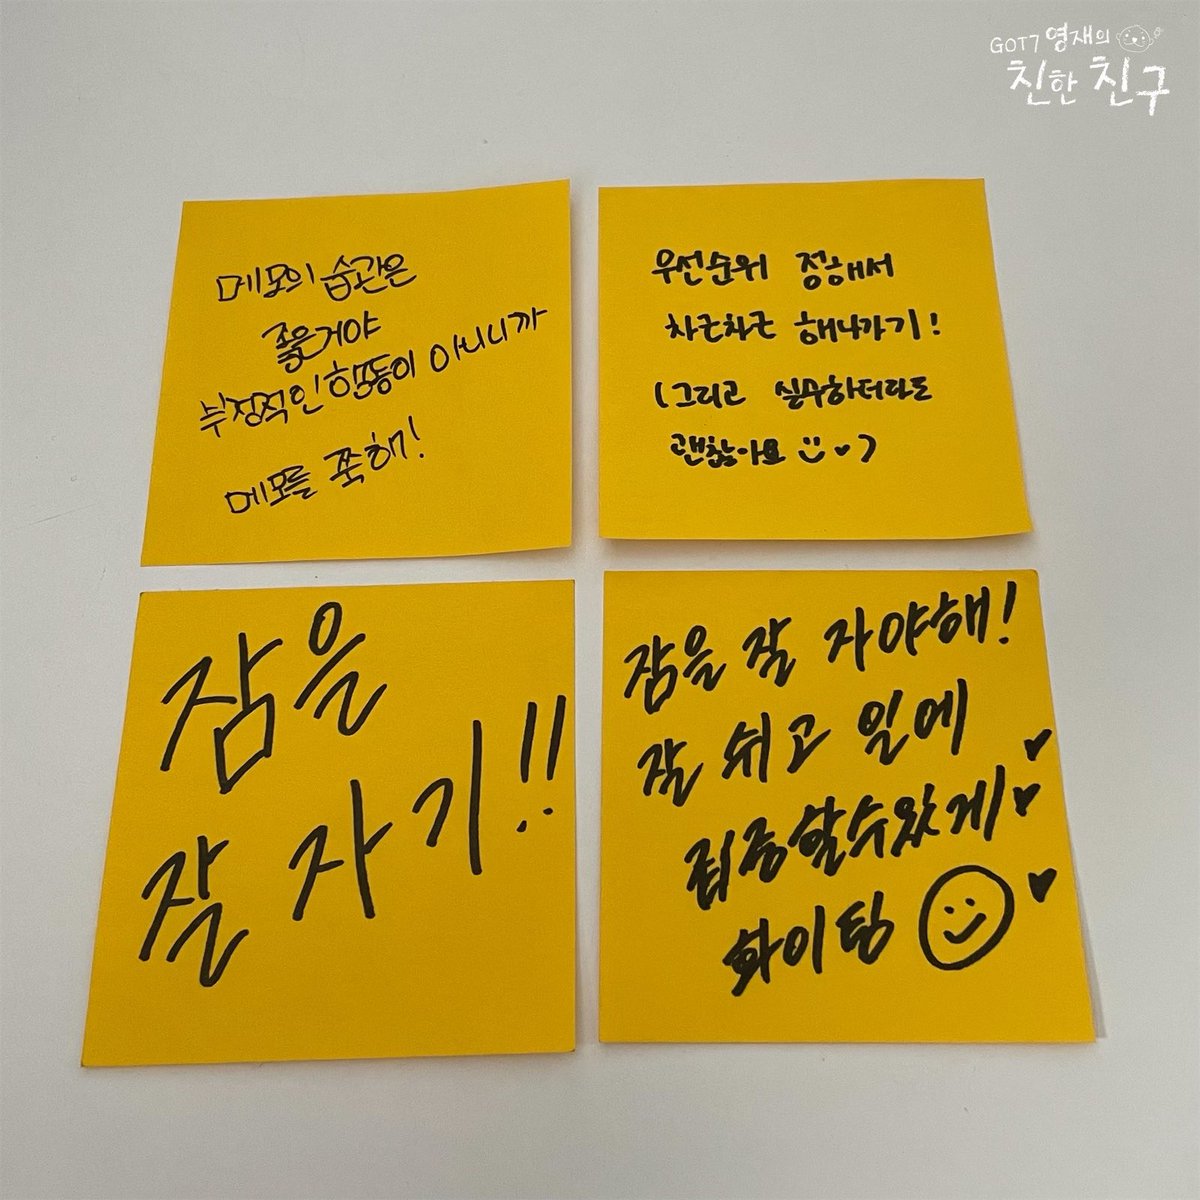 GOT7 영재의
친한 친구
메모의 습관은
좋은거야
부정적인 행동이 아니니까
메모를 쭉해!
우선순위 정해서
차근차근 해나가기!
(그리고 실수하더라도
괜찮아요 )
잠을
잘 자기!!
잠을 잘 자야해!
잘 쉬고 일에
집중할수있게
화이팅